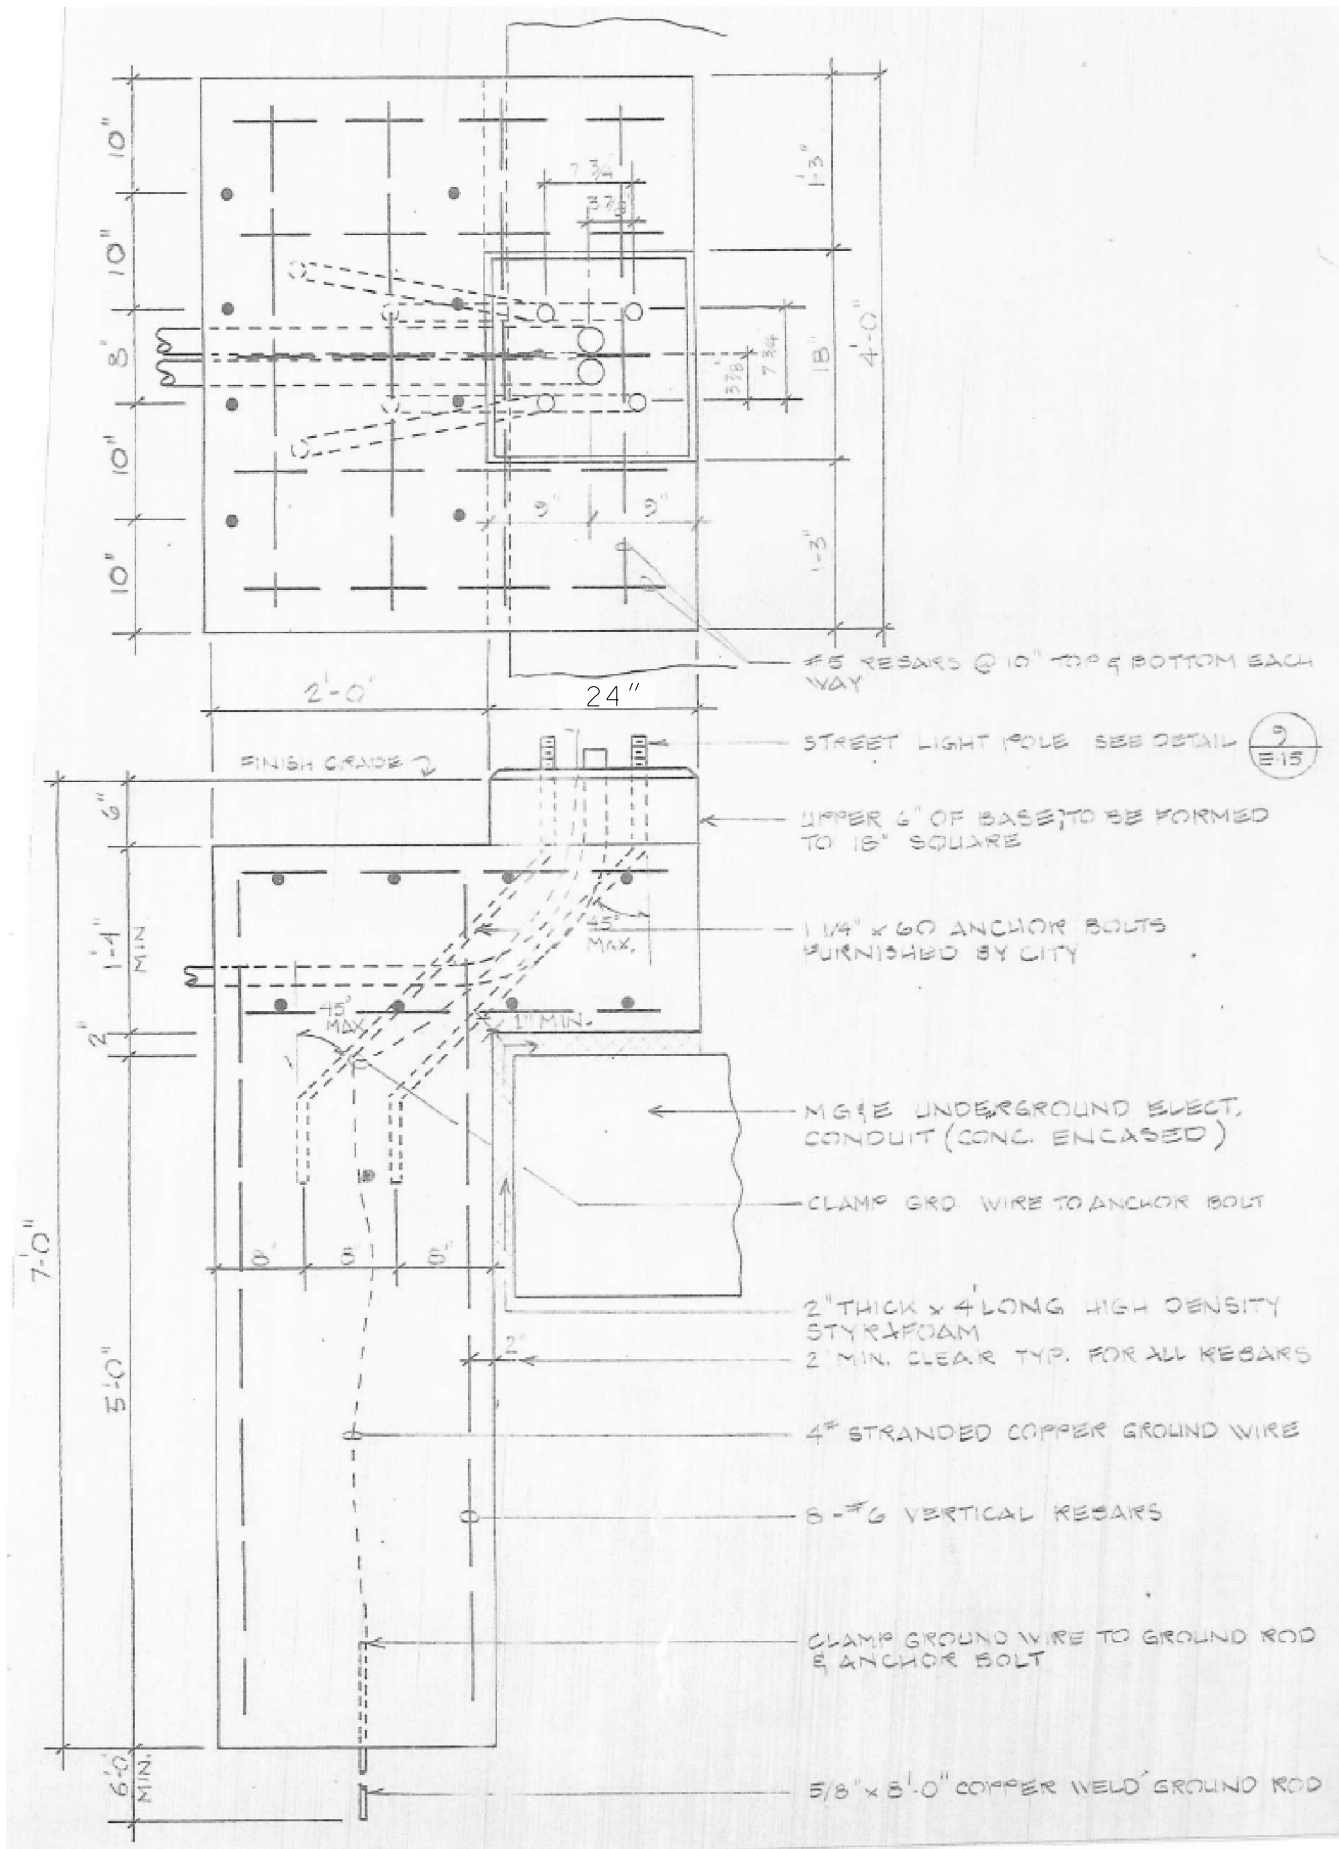 10"
10"
8"
10"
10"
7 3/4"
3 7/8"
1'-3"
18"
4'-0"
7 3/4"
3 7/8"
1'-3"
9"
9"
#5 REBARS @ 10" TOP & BOTTOM EACH
WAY
2'-0"
24"
FINISH GRADE
STREET LIGHT POLE SEE DETAIL
9
E-15
6"
UPPER 6" OF BASE, TO BE FORMED
TO 18" SQUARE
1'-4"
MIN
45°
MAX.
1 1/4" x 60 ANCHOR BOLTS
FURNISHED BY CITY
2"
45°
MAX
1" MIN.
MG&E UNDERGROUND ELECT.
CONDUIT (CONC. ENCASED)
CLAMP GRD. WIRE TO ANCHOR BOLT
7'-0"
8"
8"
8"
2" THICK x 4' LONG HIGH DENSITY
STYRAFOAM
2"
2" MIN. CLEAR TYP. FOR ALL REBARS
5'-0"
4# STRANDED COPPER GROUND WIRE
8-#6 VERTICAL REBARS
CLAMP GROUND WIRE TO GROUND ROD
& ANCHOR BOLT
6'-0"
MIN.
5/8" x 8'-0" COPPER WELD GROUND ROD